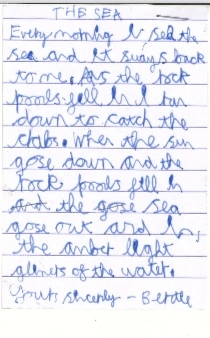 THE SEA
Every morning I see the
sea and it sways back
to me. As the rock
pools fill in I run
down to catch the
clabs. When the sun
gose down and the
rock pools fill in
the gose sea
gose out and in,
the amber light
glimers of the water.
Yours sincerly -